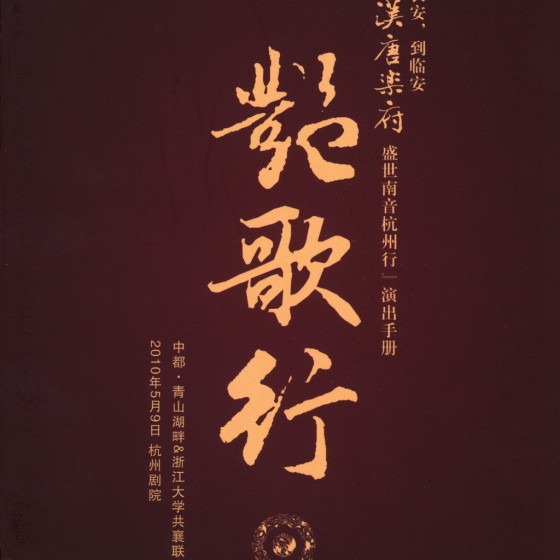 安，到临安
漢唐樂府 盛世南音杭州行」演出手册
艷歌行
中都·青山湖畔&浙江大学共襄联
2010年5月9日 杭州剧院